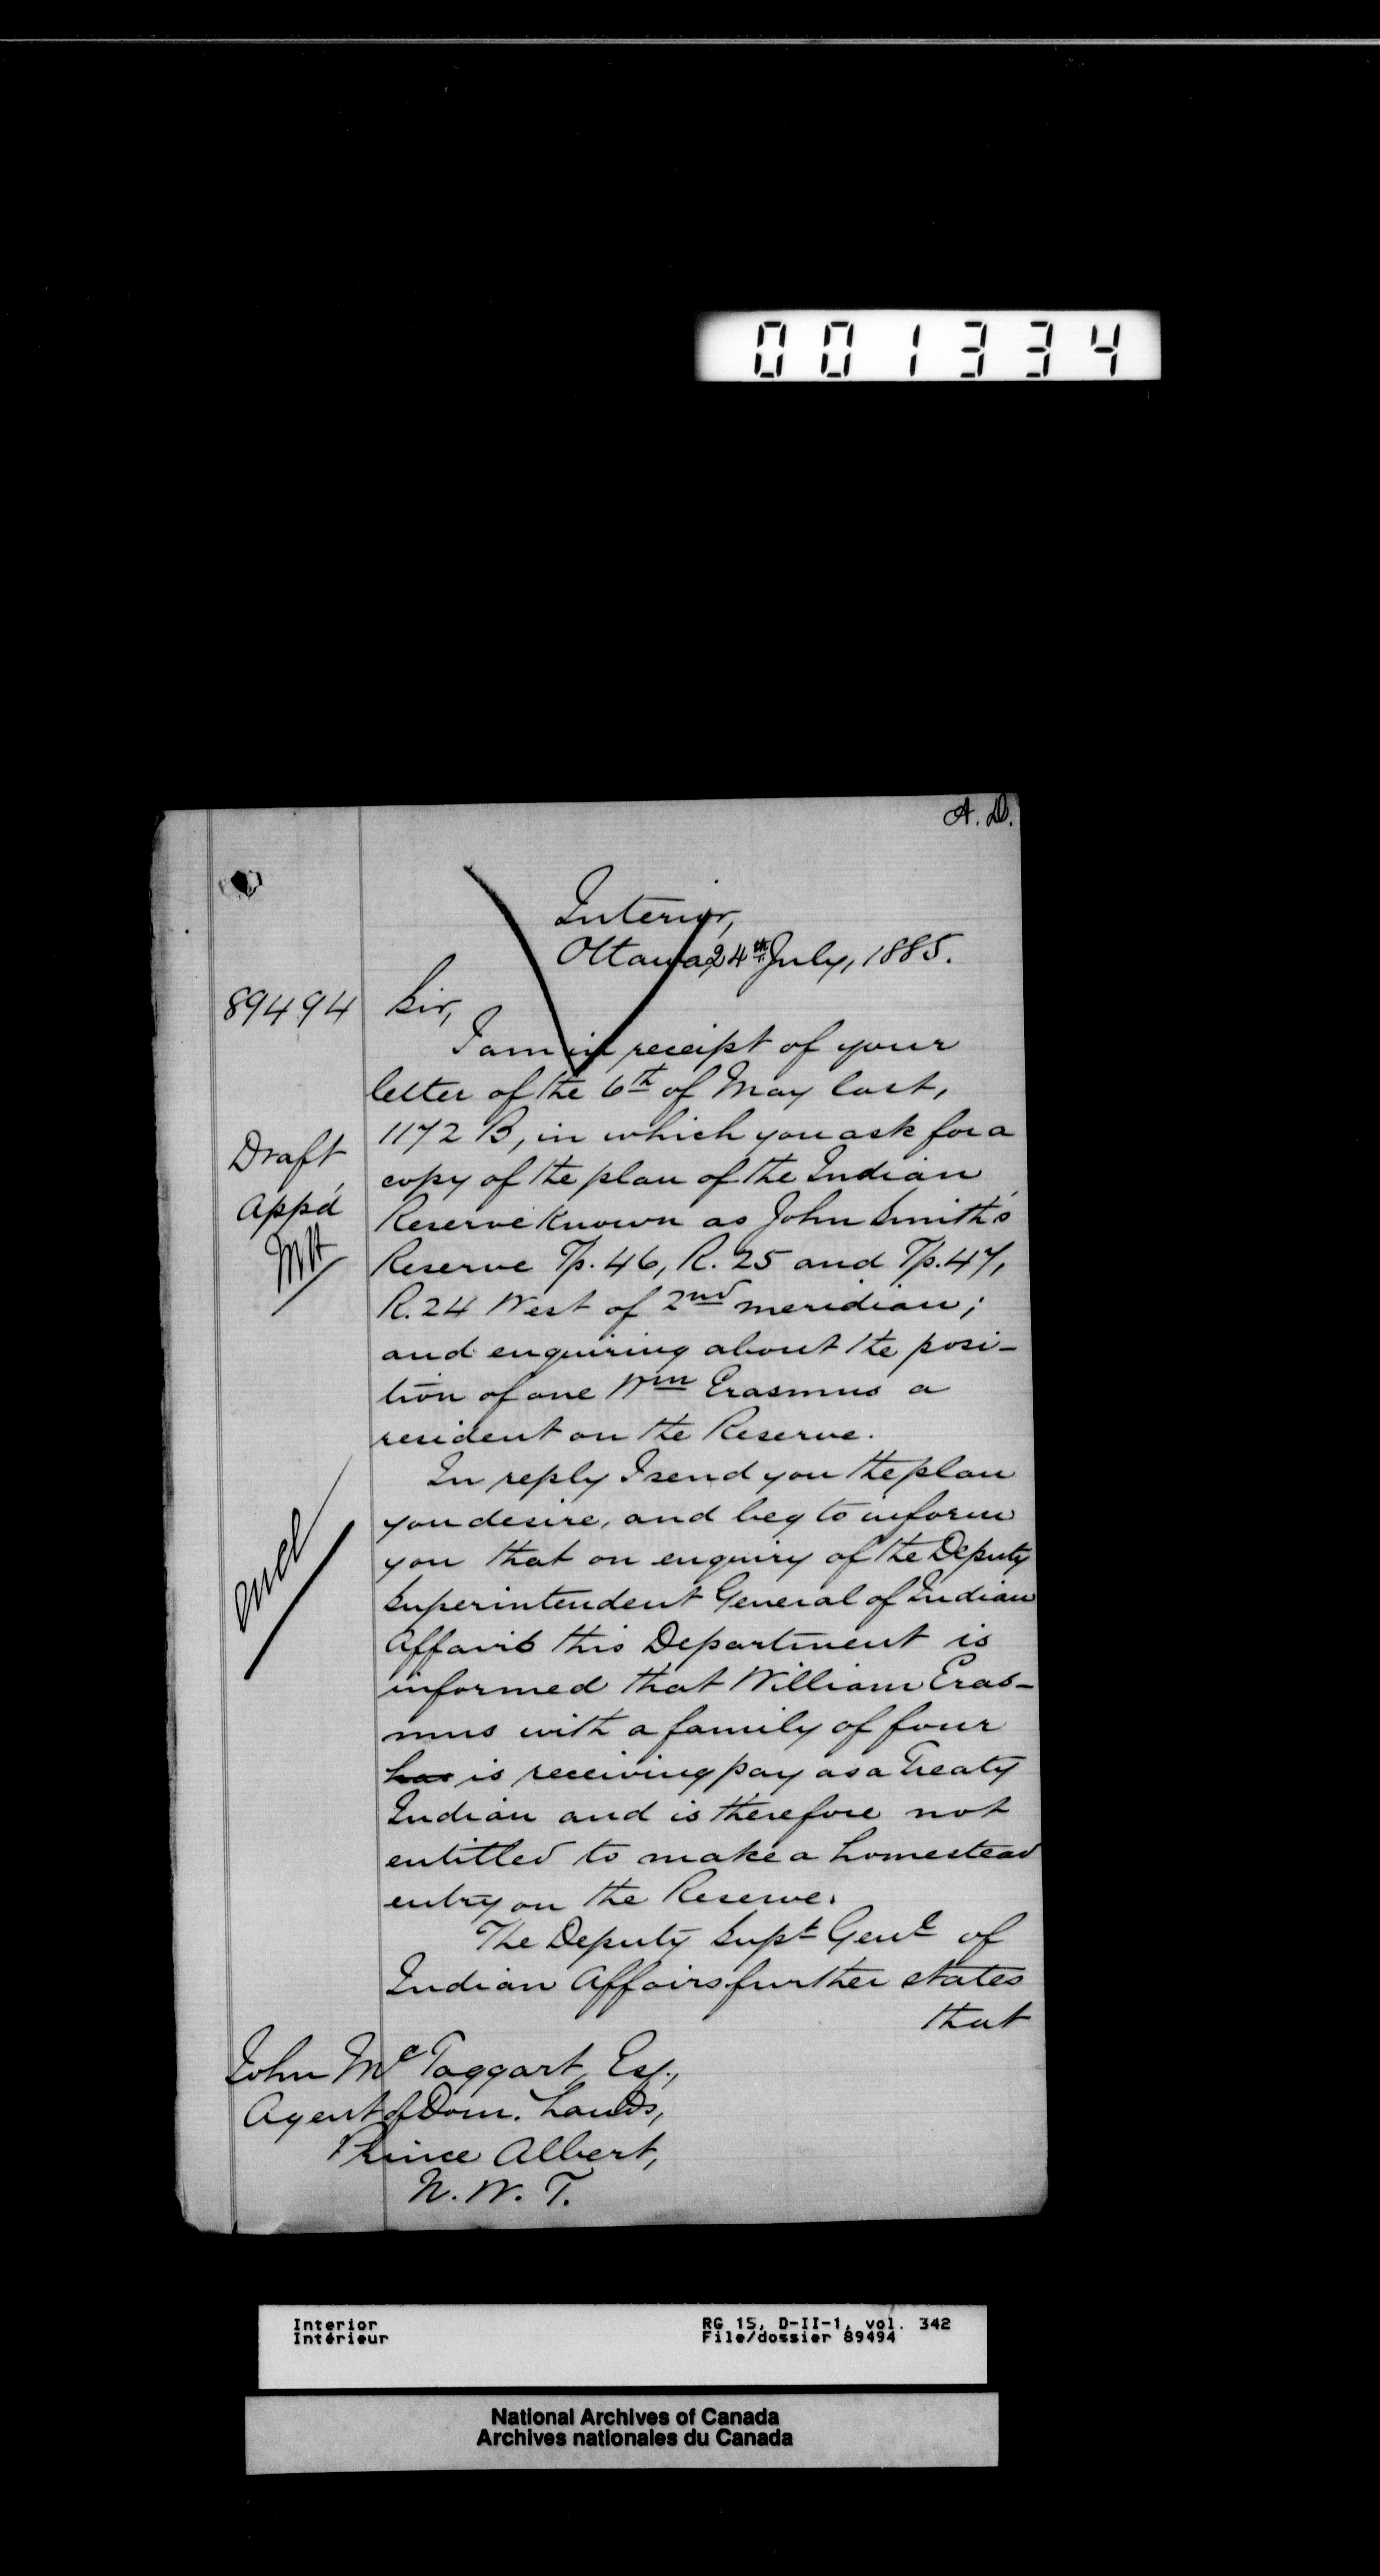 001334
A. D.
Interior,
Ottawa, 24th July, 1885.
89494
Sir,
I am in receipt of your
letter of the 6th of May last,
1172 B, in which you ask for a
Draft
copy of the plan of the Indian
App'd
Reserve known as John Smith's
MH
Reserve Tp. 46, R. 25 and Tp. 47,
R. 24 West of 2nd meridian;
and enquiring about the posi-
tion of one Wm Erasmus a
resident on the Reserve.
In reply I send you the plan
you desire, and beg to inform
encl
you that on enquiry of the Deputy
Superintendent General of Indian
Affairs this Department is
informed that William Eras-
mus with a family of four
has is receiving pay as a Treaty
Indian and is therefore not
entitled to make a homestead
entry on the Reserve.
The Deputy Supt Genl of
Indian Affairs further states
that
John McTaggart, Esq.,
Agent of Dom. Lands,
Prince Albert,
N. W. T.
Interior RG 15, D-II-1, vol. 342
Intérieur File/dossier 89494
National Archives of Canada
Archives nationales du Canada